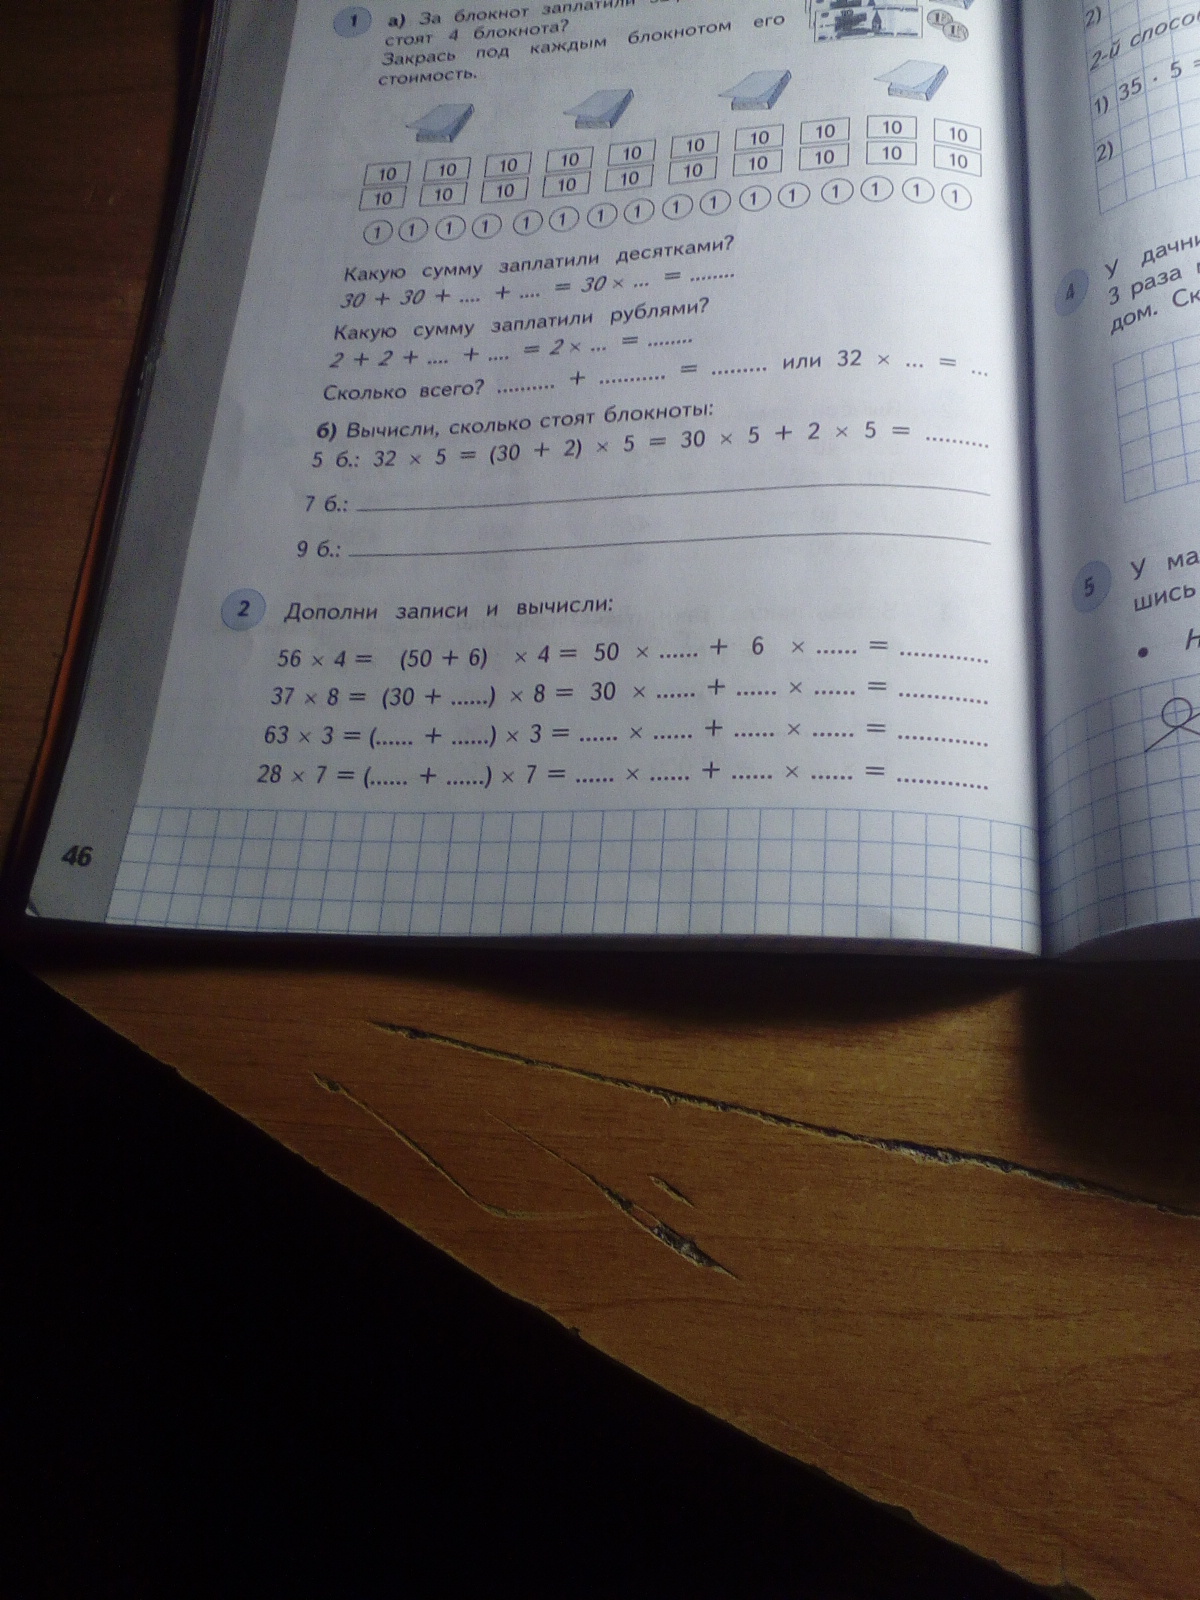 1 а) За блокнот заплатили
стоят 4 блокнота?
Закрась под каждым блокнотом его
стоимость.
10 10 10 10 10 10 10 10 10 10
10 10 10 10 10 10 10 10 10 10
1 1 1 1 1 1 1 1 1 1 1 1 1 1 1 1
Какую сумму заплатили десятками?
30 + 30 + .... + .... = 30 × ... = ........
Какую сумму заплатили рублями?
2 + 2 + .... + .... = 2 × ... = ........
Сколько всего? .......... + ........... = ......... или 32 × ... = ...
б) Вычисли, сколько стоят блокноты:
5 б.: 32 × 5 = (30 + 2) × 5 = 30 × 5 + 2 × 5 = ..........
7 б.:
9 б.:
2 Дополни записи и вычисли:
56 × 4 = (50 + 6) × 4 = 50 × ...... + 6 × ...... = .............
37 × 8 = (30 + ......) × 8 = 30 × ...... + ...... × ...... = .............
63 × 3 = (...... + ......) × 3 = ...... × ...... + ...... × ...... = .............
28 × 7 = (...... + ......) × 7 = ...... × ...... + ...... × ...... = .............
46
2)
2-й
1) 35 · 5 =
2)
4 У
3 раза
дом.
5 У
шись
•